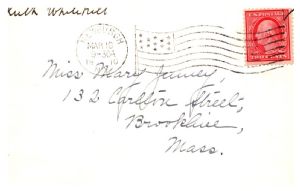 Ruth Whitehill
MAR 15
U.S. POSTAGE
TWO CENTS
Miss Mary
132 Carlton Street,
Brookline,
Mass.